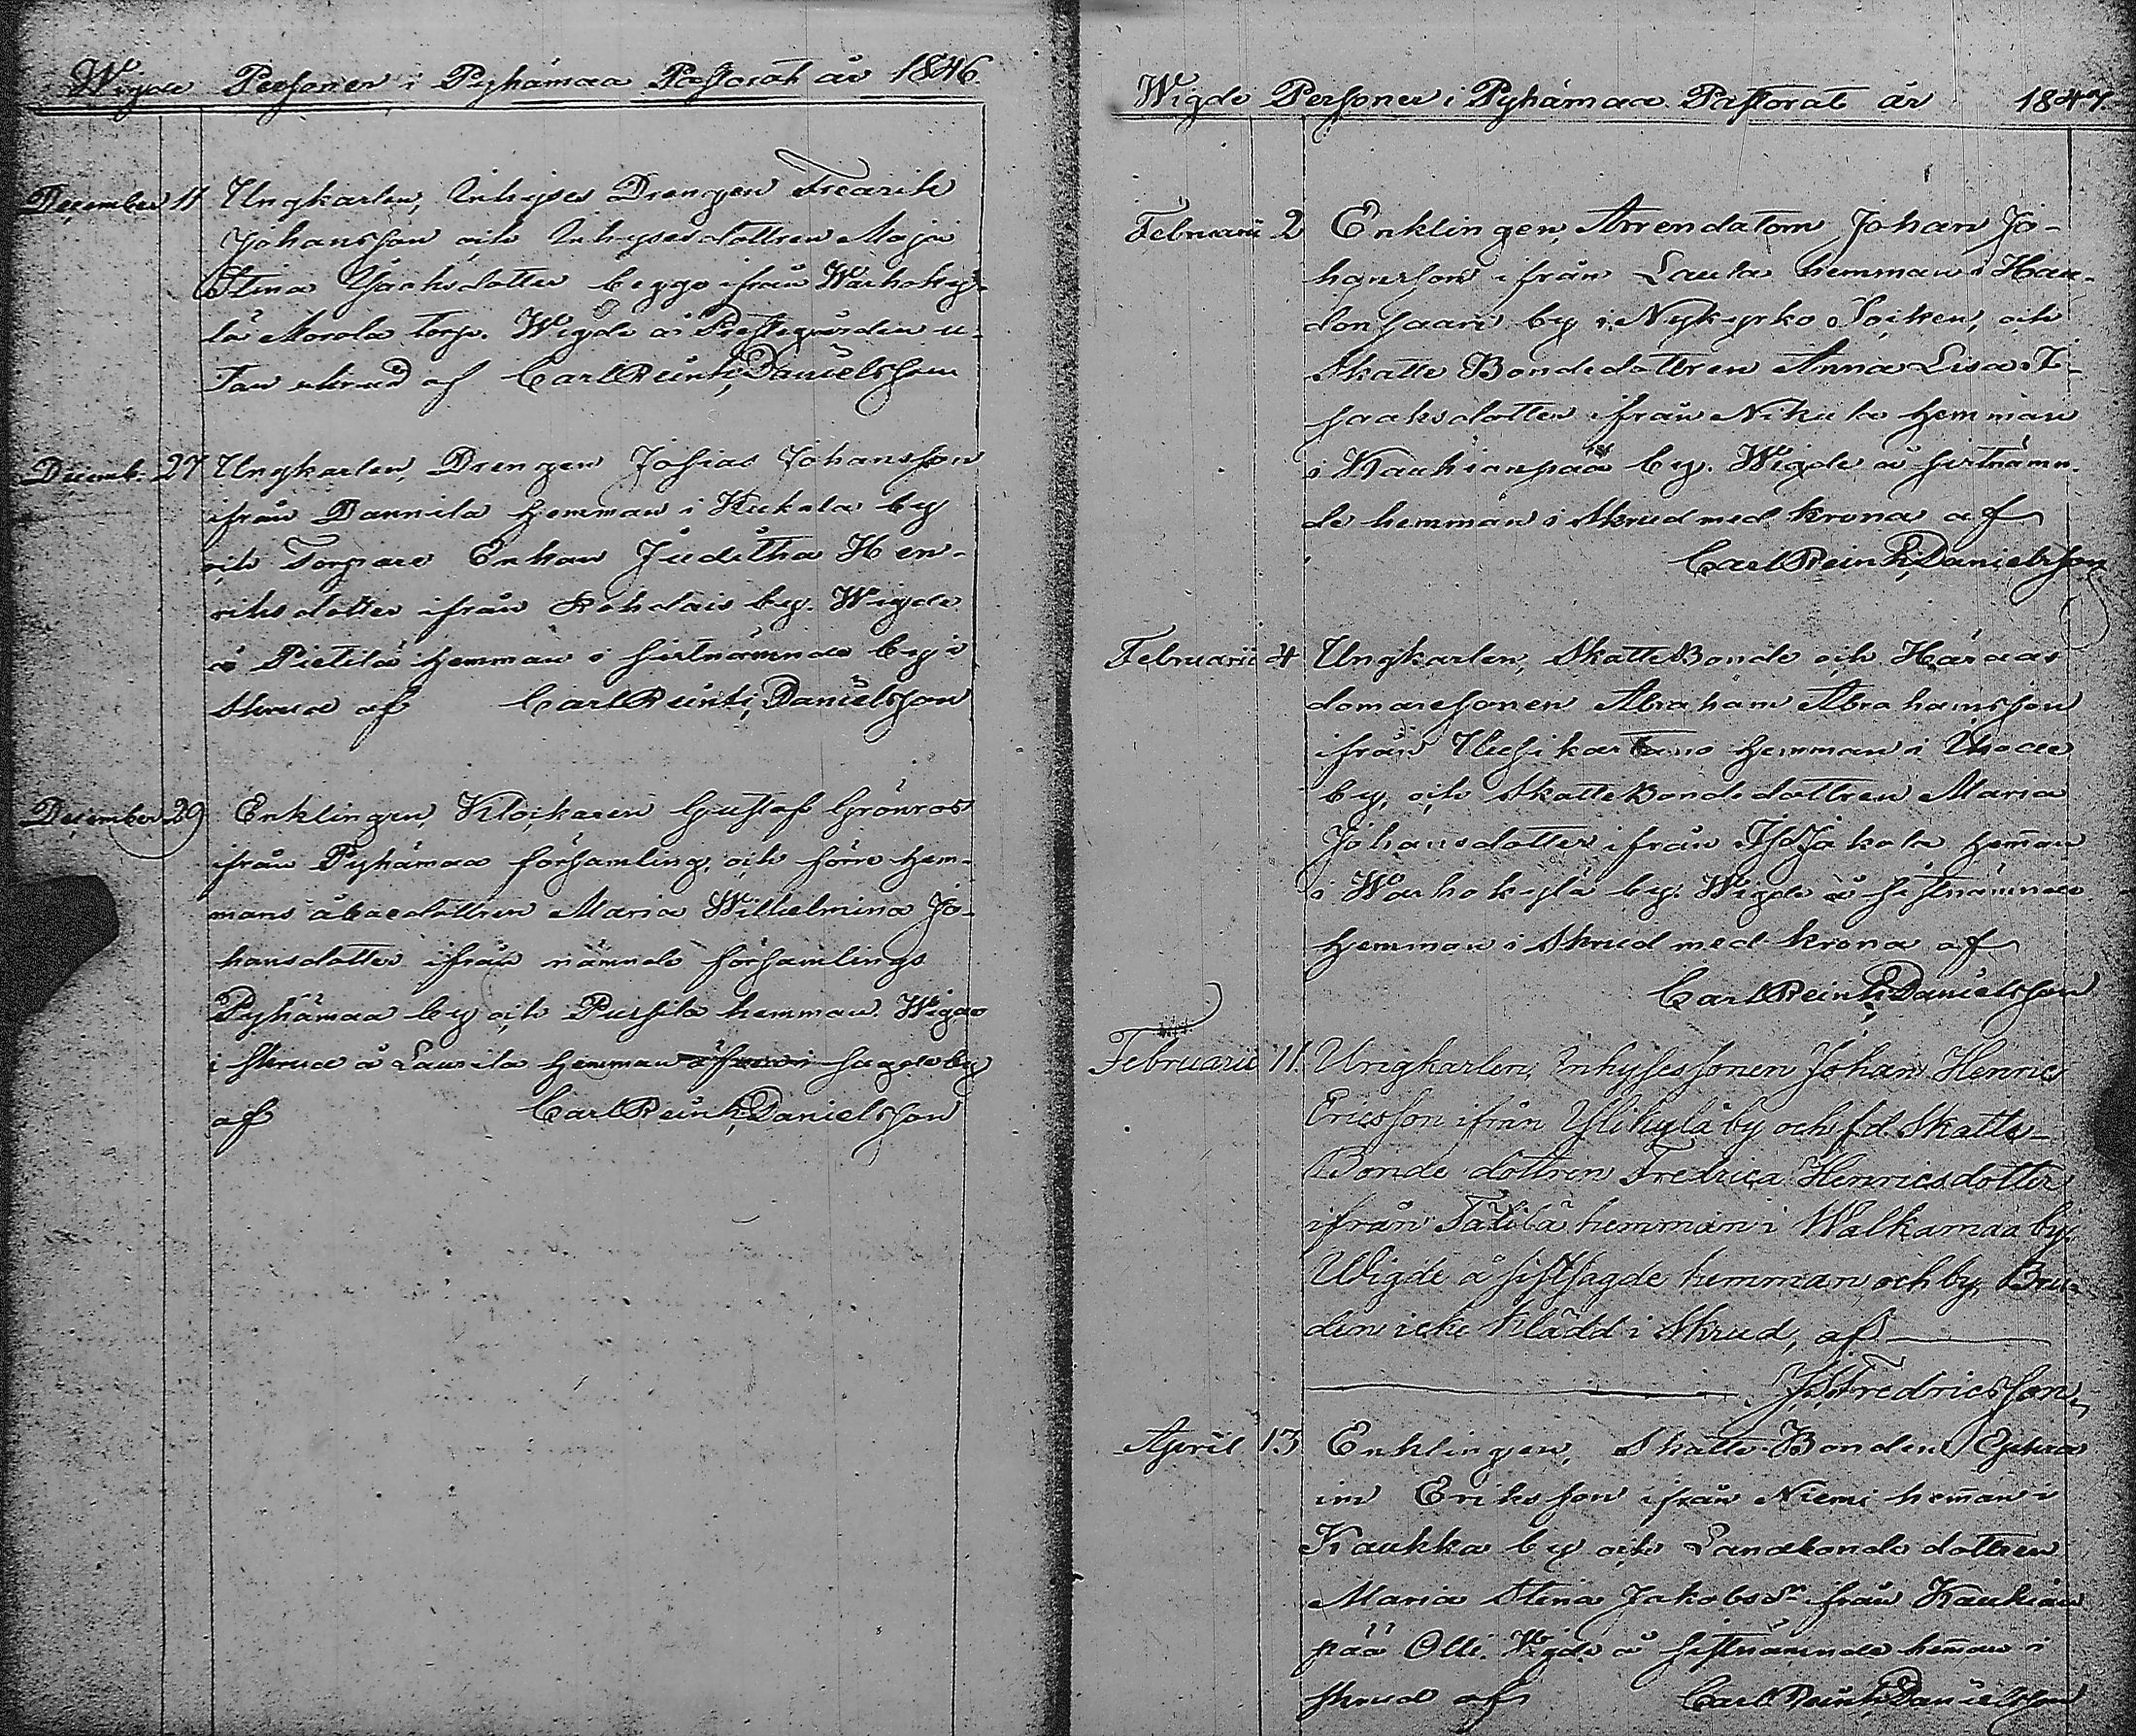 Wigde Personer i Pyhämaa Pastorat år 1846.
December 11 Ungkarlen, Inhyses Drengen Fredrik
Johansson och Inhysesdottren Maja
Stina Isaksdotter begge ifrån Warhoky-
lä Morola torp. Wigde å Prestegården u-
tan skrud af Carl Reinh. Danielsson
Decemb. 27 Ungkarlen, Drengen Josias Johansson
ifrån Dannila hemman i Kukola by
och Torpare Enkan Juditha Hen-
riksdotter ifrån Rohdais by. Wigde
å Pietilä hemman i sistnämnda by i
skrud af Carl Reinh. Danielsson
December 29 Enklingen, Klockaren Gustaf Grönroos
ifrån Pyhämaa församling, och förre hem-
mans åboedottren Maria Wilhelmina Jo-
hansdotter ifrån nämnde församlings
Pyhämaa by och Pursila hemman. Wigde
i skrud å Laurila hemman i sagde by
af Carl Reinh. Danielsson
Wigde Personer i Pyhämaa Pastorat år 1847.
Februarii 2 Enklingen, Arrendatorn Johan Jo-
hansson ifrån Laula hemman i Hau-
donsaari by i Nykyrko Socken, och
Skatte Bondedottren Anna Lisa I-
saaksdotter ifrån Nikula hemman
i Kaukianpää by. Wigde å sistnämn-
de hemman i skrud med krona af
Carl Reinh. Danielsson
Februarii 4 Ungkarlen, Skatte Bonde och Härads
domaresonen Abraham Abrahamsson
ifrån Uusikartano hemman i by, och Skatte Bondedottren Maria
Johansdotter ifrån Iso Jakola heman
i Warhokylä by. Wigde å sistnämnde
hemman i skrud med krona af
Carl Reinh. Danielsson
Februarii 11. Ungkarlen, Inhysessonen Johan Henric
Ericsson ifrån Ylikylä by och f.d. Skatte-
Bonde dottren Fredrica Henricsdotter
ifrån Tätilä hemman i Walkamaa by.
Wigde å sistsagde hemman och by, Bru-
den icke klädd i Skrud, af
J. Fredricsson.
April 13 Enklingen, Skatte Bonden Ephra
im Eriksson ifrån Niemi heman i
Kaukka by och Landbonde dottren
Maria Stina Jakobsdr från Kaukian
pää Olli. Wigde å sistnämnde heman i
skrud af Carl Reinh. Danielsson